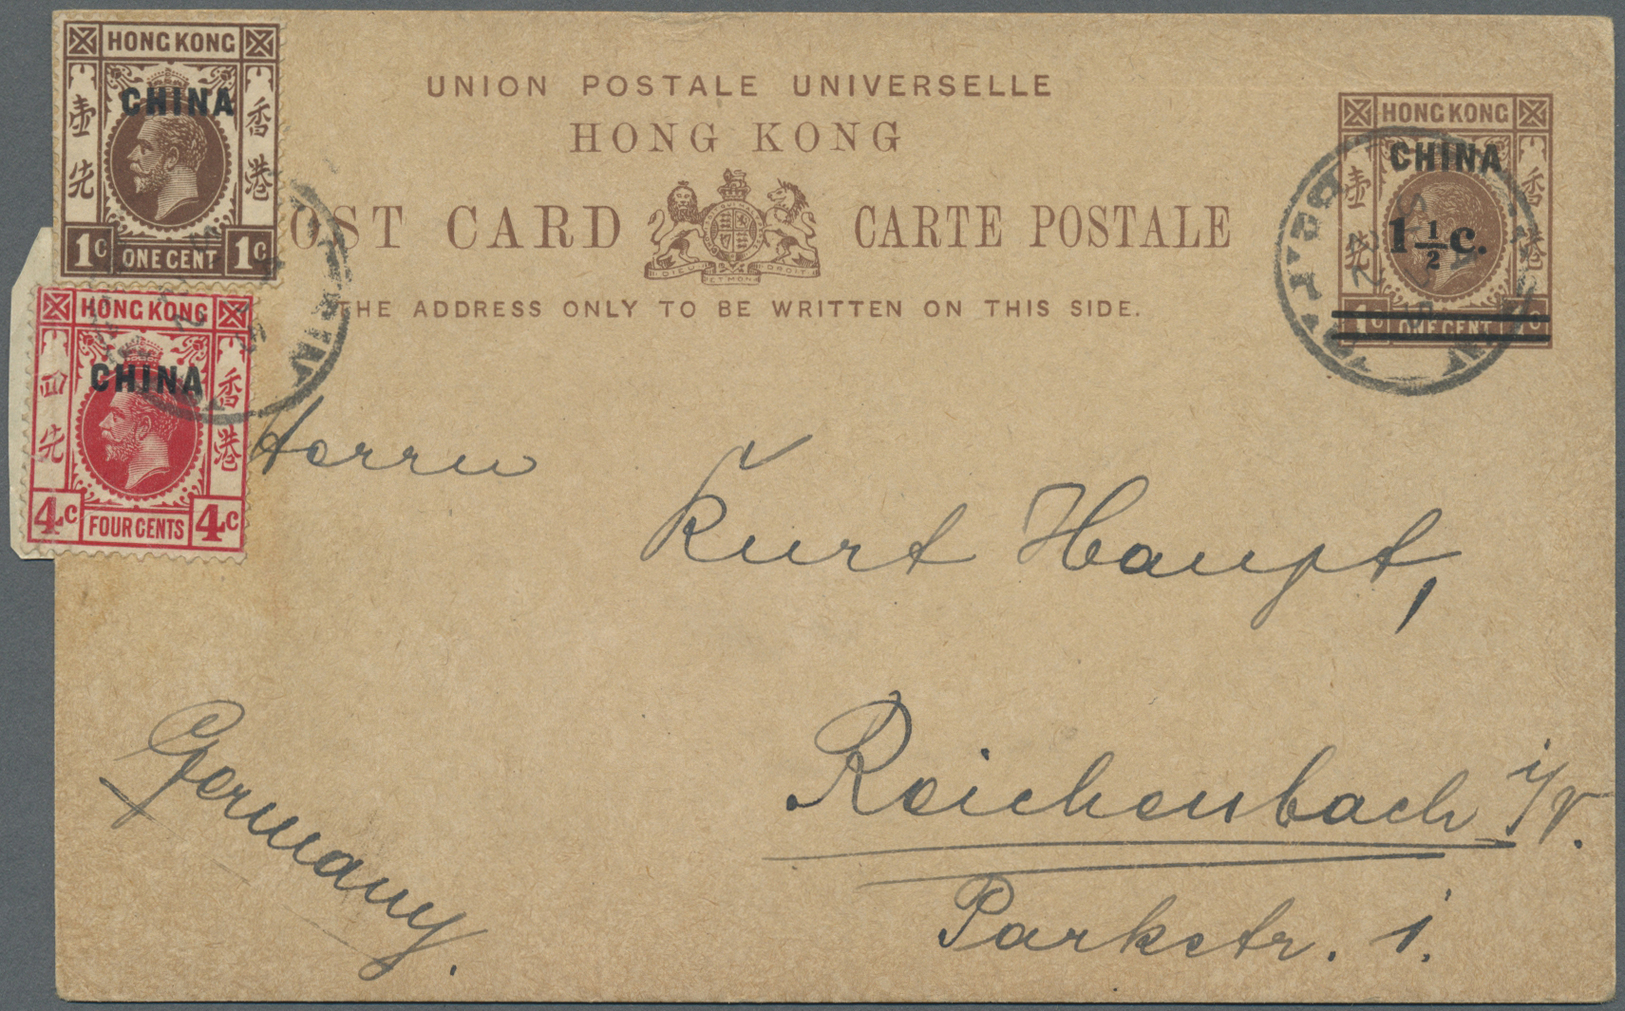 UNION POSTALE UNIVERSELLE
HONG KONG
OST CARD CARTE POSTALE
DIEU ET MON DROIT
THE ADDRESS ONLY TO BE WRITTEN ON THIS SIDE.
HONG KONG
CHINA
壹先 香港
1c ONE CENT 1c
HONG KONG
CHINA
四先 香港
4c FOUR CENTS 4c
HONG KONG
CHINA
壹先 香港
1 1/2 c.
1c ONE CENT c
Herrn
Kurt Haupt,
Reichenbach i/V.
Parkstr. 1.
Germany.